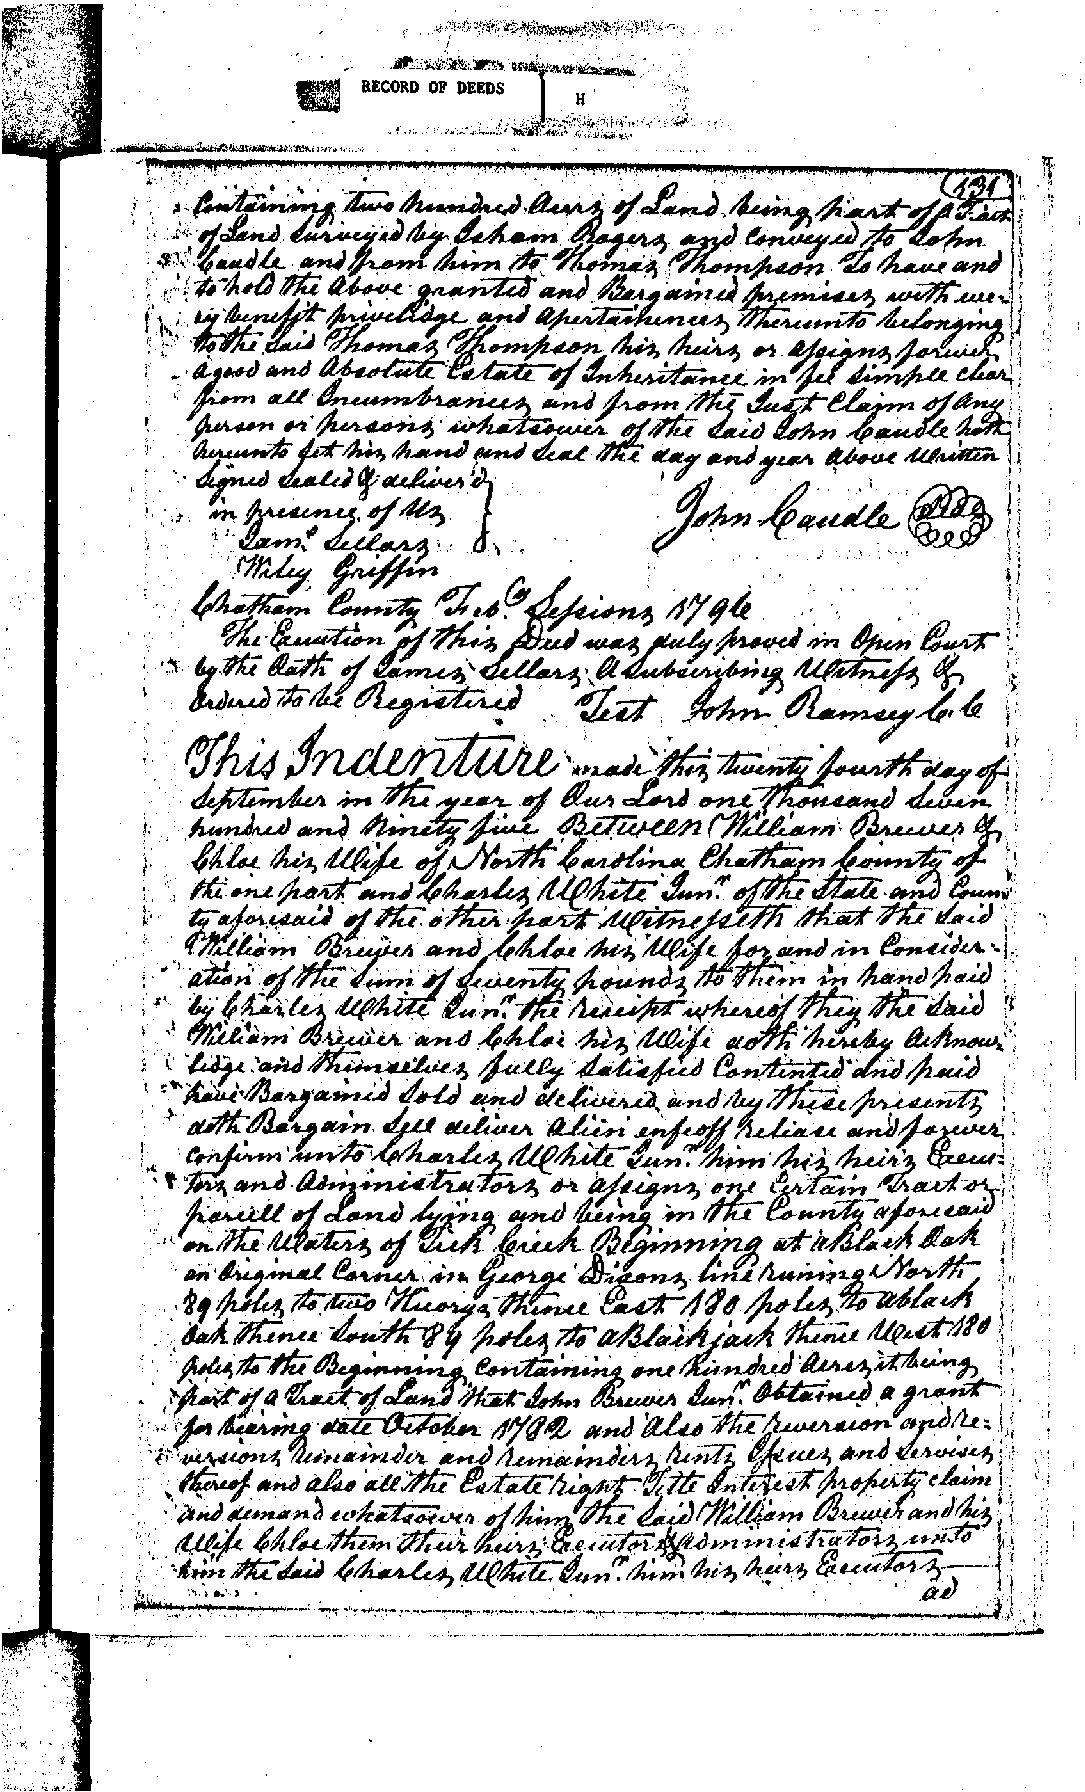 RECORD OF DEEDS H
131
Containing two hundred Acres of Land being part of a Tract
of Land surveyed by Isham Rogers and Conveyed to John
Caudle and from him to Thomas Thompson To have and
to hold the Above granted and Bargained premises with eve-
ry benefit privelidge and apertainences thereunto belonging
to the Said Thomas Thompson his heirs or assigns forever
a good and Absolute Estate of Inheritance in fee Simple Clear
from all Incumbrances and from the Just Claim of Any
person or persons whatsoever of the Said John Caudle hath
hereunto Set his hand and Seal the day and year Above Written
Signed Sealed & deliver'd
in presence of Us
Jams Sellars
Wiley Griffin
John Caudle Seal
Chatham County Feby Sessions 1796
The Execution of this Deed was duly proved in Open Court
by the Oath of James Sellars A Subscribing Witness &
Ordered to be Registered Test John Ramsey C.C
This Indenture made this twenty fourth day of
September in the year of Our Lord one thousand Seven
hundred and Ninety five Between William Brewer &
Chloe his Wife of North Carolina Chatham County of
the one part and Charles White Junr of the State and Coun
ty aforesaid of the other part Witnesseth that the Said
William Brewer and Chloe his Wife for and in Consider-
ation of the Sum of Seventy pounds to them in hand paid
by Charles White Junr the receipt whereof they the Said
William Brewer and Chloe his Wife doth hereby Acknow-
ledge and themselves fully Satisfied Contented and paid
have Bargained Sold and delivered and by these presents
doth Bargain Sell deliver Alien enfeoff Release and forever
confirm unto Charles White Junr him his heirs Execu-
tors and Administrators or assigns one Certain Tract or
parcell of Land lying and being in the County aforesaid
on the Waters of Tick Creek Beginning at a Black Oak
an Original Corner in George Dixons line runing North
89 poles to two Hicorys thence East 180 poles to a black
Oak thence South 89 poles to a Blackjack thence West 180
poles to the Beginning Containing one hundred Acres it being
part of a Tract of Land that John Brewer Junr Obtained a grant
for bearing date October 1782 and Also the reversion and re-
versions remainder and remainders rents Issues and Servises
thereof and also all the Estate right Title Interest property claim
and demand whatsoever of him the Said William Brewer and his
Wife Chloe them their heirs Executors & Administrators unto
him the Said Charles White Junr him his heirs Executors
ad